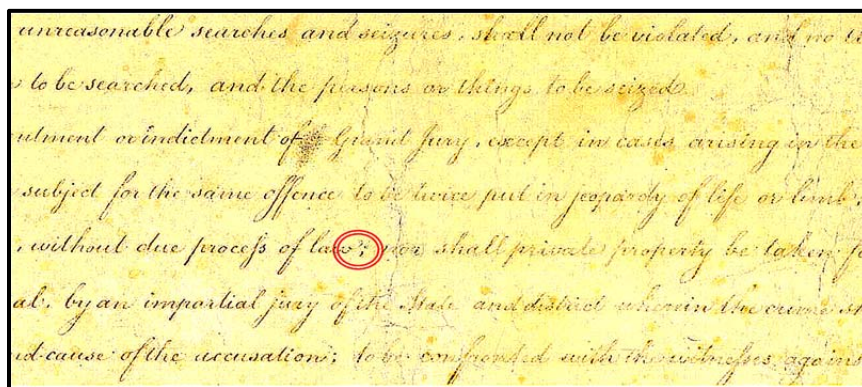 unreasonable searches and seizures, shall not be violated, and no
to be searched, and the persons or things to be seized
or indictment of Grand Jury, except in cases arising in the
subject for the same offence to be twice put in jeopardy of life or limb;
, without due process of law; nor shall private property be taken
by an impartial jury of the State and district wherein the crime
cause of the accusation; to be confronted with the witnesses